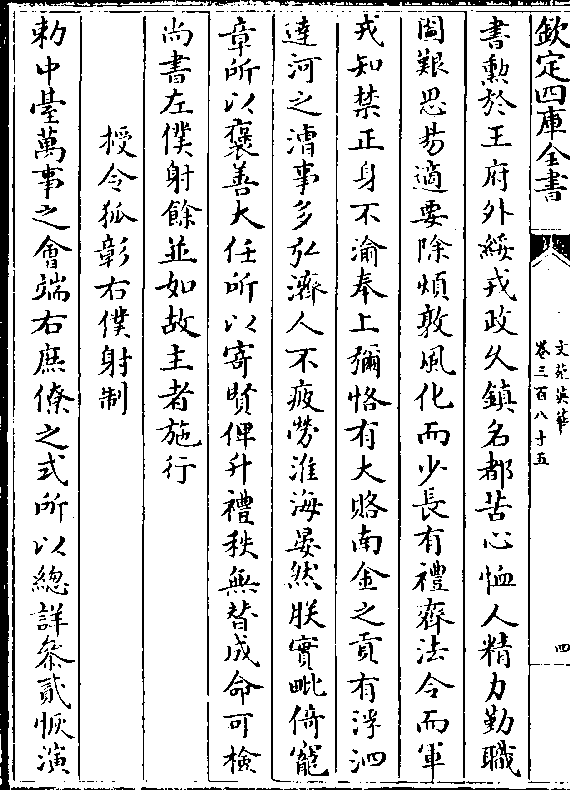 欽定四庫全書
文苑英華
卷三百八十五
四
書勲於王府外綏戎政久鎮名都苦心恤人精力勤職
圖艱思易適要除煩敦風化而少長有禮齊法令而軍
戎知禁正身不渝奉上彌恪有大賂南金之貢有浮泗
達河之漕事多弘濟人不疲勞淮海晏然朕實毗倚寵
章所以褒善大任所以寄賢俾升禮秩無替成命可檢
尚書左僕射餘並如故主者施行
授令狐彰右僕射制
勅中臺萬事之會端右庶僚之式所以總詳參貳恢演